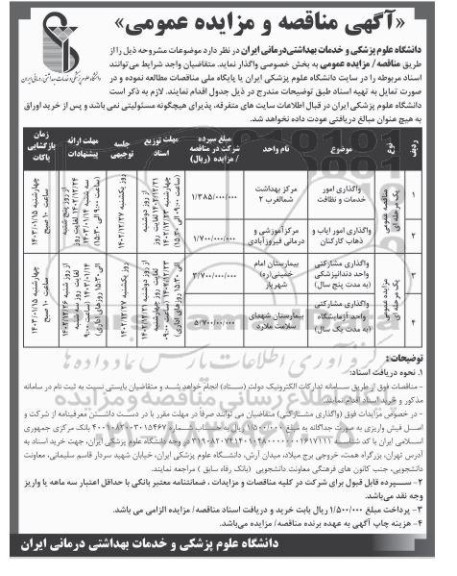 «آگهی مناقصه و مزایده عمومی»
دانشگاه علوم پزشکی و خدمات بهداشتی درمانی ایران
دانشگاه علوم پزشکی و خدمات بهداشتی‌درمانی ایران در نظر دارد موضوعات مشروحه ذیل را از
طریق مناقصه / مزایده عمومی به بخش خصوصی واگذار نماید. متقاضیان واجد شرایط می‌توانند
اسناد مربوطه را در سایت دانشگاه علوم پزشکی ایران یا پایگاه ملی مناقصات مطالعه نموده و در
صورت تمایل به تهیه اسناد طبق توضیحات مندرج در ذیل جدول اقدام نمایند. لازم به ذکر است
دانشگاه علوم پزشکی ایران در قبال اطلاعات سایت های متفرقه، پذیرای هیچگونه مسئولیتی نمی‌باشد و پس از خرید اوراق
به هیچ عنوان مبالغ دریافتی عودت داده نخواهد شد.
ردیف نوع موضوع نام واحد مبلغ سپرده شرکت در مناقصه / مزایده (ریال) مهلت توزیع اسناد جلسه توجیهی مهلت ارائه پیشنهادات زمان بازگشایی پاکات
۱ مناقصه عمومی یک مرحله‌ای واگذاری امور خدمات و نظافت مرکز بهداشت شمالغرب ۲ ۱/۳۸۵/۰۰۰/۰۰۰
۲ واگذاری امور ایاب و ذهاب کارکنان مرکز آموزشی و درمانی فیروزآبادی ۱/۷۰۰/۰۰۰/۰۰۰
چهارشنبه ۱۴۰۳/۰۱/۱۵ ساعت ۱۰ صبح
۳ مزایده عمومی یک مرحله‌ای واگذاری مشارکتی واحد دندانپزشکی (به مدت پنج سال) بیمارستان امام خمینی(ره) شهریار ۲/۷۰۰/۰۰۰/۰۰۰
۴ واگذاری مشارکتی واحد آزمایشگاه (به مدت یک سال) بیمارستان شهدای سلامت ملارد ۵/۷۰۰/۰۰۰/۰۰۰
چهارشنبه ۱۴۰۳/۰۱/۱۵ ساعت ۱۰ صبح
توضیحات :
۱. نحوه دریافت اسناد:
- مناقصات فوق از طریق سامانه تدارکات الکترونیک دولت (ستاد) انجام خواهد شد و متقاضیان بایستی نسبت به ثبت نام در سامانه
مذکور و خرید اسناد اقدام نمایند.
- در خصوص مزایدات فوق (واگذاری مشارکتی) متقاضیان می توانند صرفاً در مهلت مقرر با در دست داشتن معرفینامه از شرکت و
اصل فیش واریزی به صورت جداگانه به مبلغ ۱/۵۰۰/۰۰۰ ریال به حساب شماره بانک مرکزی جمهوری
اسلامی ایران با کد شناسه وجه دانشگاه علوم پزشکی ایران، جهت خرید اسناد به
آدرس تهران، بزرگراه همت، خروجی برج میلاد، میدان آرش، دانشگاه علوم پزشکی ایران، خیابان شهید سردار قاسم سلیمانی، معاونت
دانشجویی، جنب کانون های فرهنگی معاونت دانشجویی (بانک رفاه سابق ) مراجعه نمایند.
۲- سپرده قابل قبول برای شرکت در کلیه مناقصات و مزایدات ، ضمانتنامه معتبر بانکی با حداقل اعتبار سه ماهه یا واریز
وجه نقد می‌باشد.
۳- پرداخت مبلغ ۱/۵۰۰/۰۰۰ ریال بابت خرید و دریافت اسناد مناقصه/ مزایده الزامی می باشد.
۴- هزینه چاپ آگهی به عهده برنده مناقصه/ مزایده می‌باشد.
دانشگاه علوم پزشکی و خدمات بهداشتی درمانی ایران